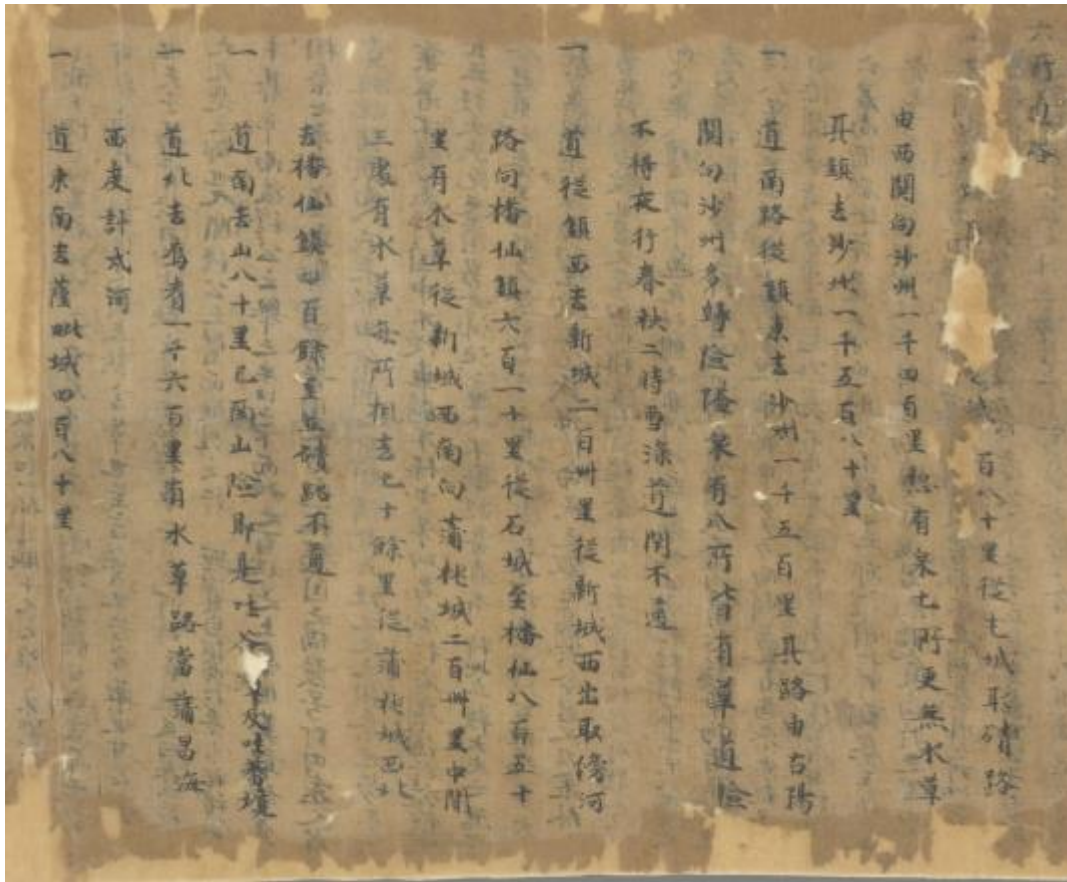 六所道路
城一百八十里從屯城取磧路
由西關向沙州一千四百里惣有泉七所更無水草
其鎮去沙州一千五百八十里
一 道南路從鎮東去沙州一千五百里其路由古陽
關向沙州多緣險隘泉有八所皆有草道險
不得夜行春秋二時雪深道閉不通
一 道從鎮西去新城二百卌里從新城西出取傍河
路向播仙鎮六百一十里從石城至播仙八百五十
里有水草從新城西南向蒲桃城二百卌里中間
三處有水草每所相去七十餘里從蒲桃城西北
去播仙鎮四百餘里並磧路不通
一 道南去山八十里已南山險即是吐谷渾及吐蕃境
一 道北去焉耆一千六百里有水草路當蒲昌海
西度計戍河
一 道東南去薩毗城四百八十里